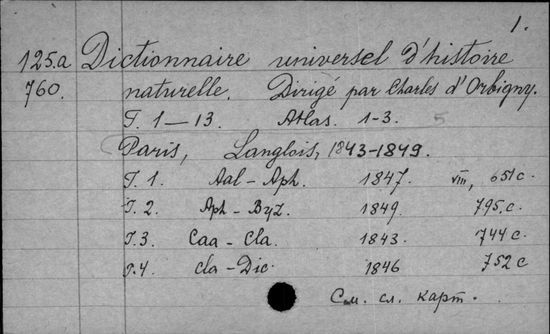 1.
125.a Dictionnaire universel d'histoire
760. naturelle. Dirigé par Charles d'Orbigny.
T. 1—13. Atlas. 1-3. 5
Paris, Langlois, 1843-1849.
T. 1. Aal - Aph. 1847. VIII, 651 c.
T. 2. Aph - Byz. 1849. 795. c.
T. 3. Caa - Cla. 1843. 744 c.
T. 4. Cla - Dic. 1846 752 c
См. сл. карт.